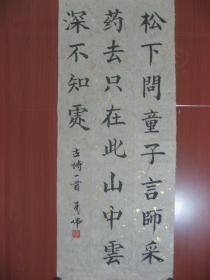 松下問童子言師采
药去只在此山中雲
深不知处
古诗一首